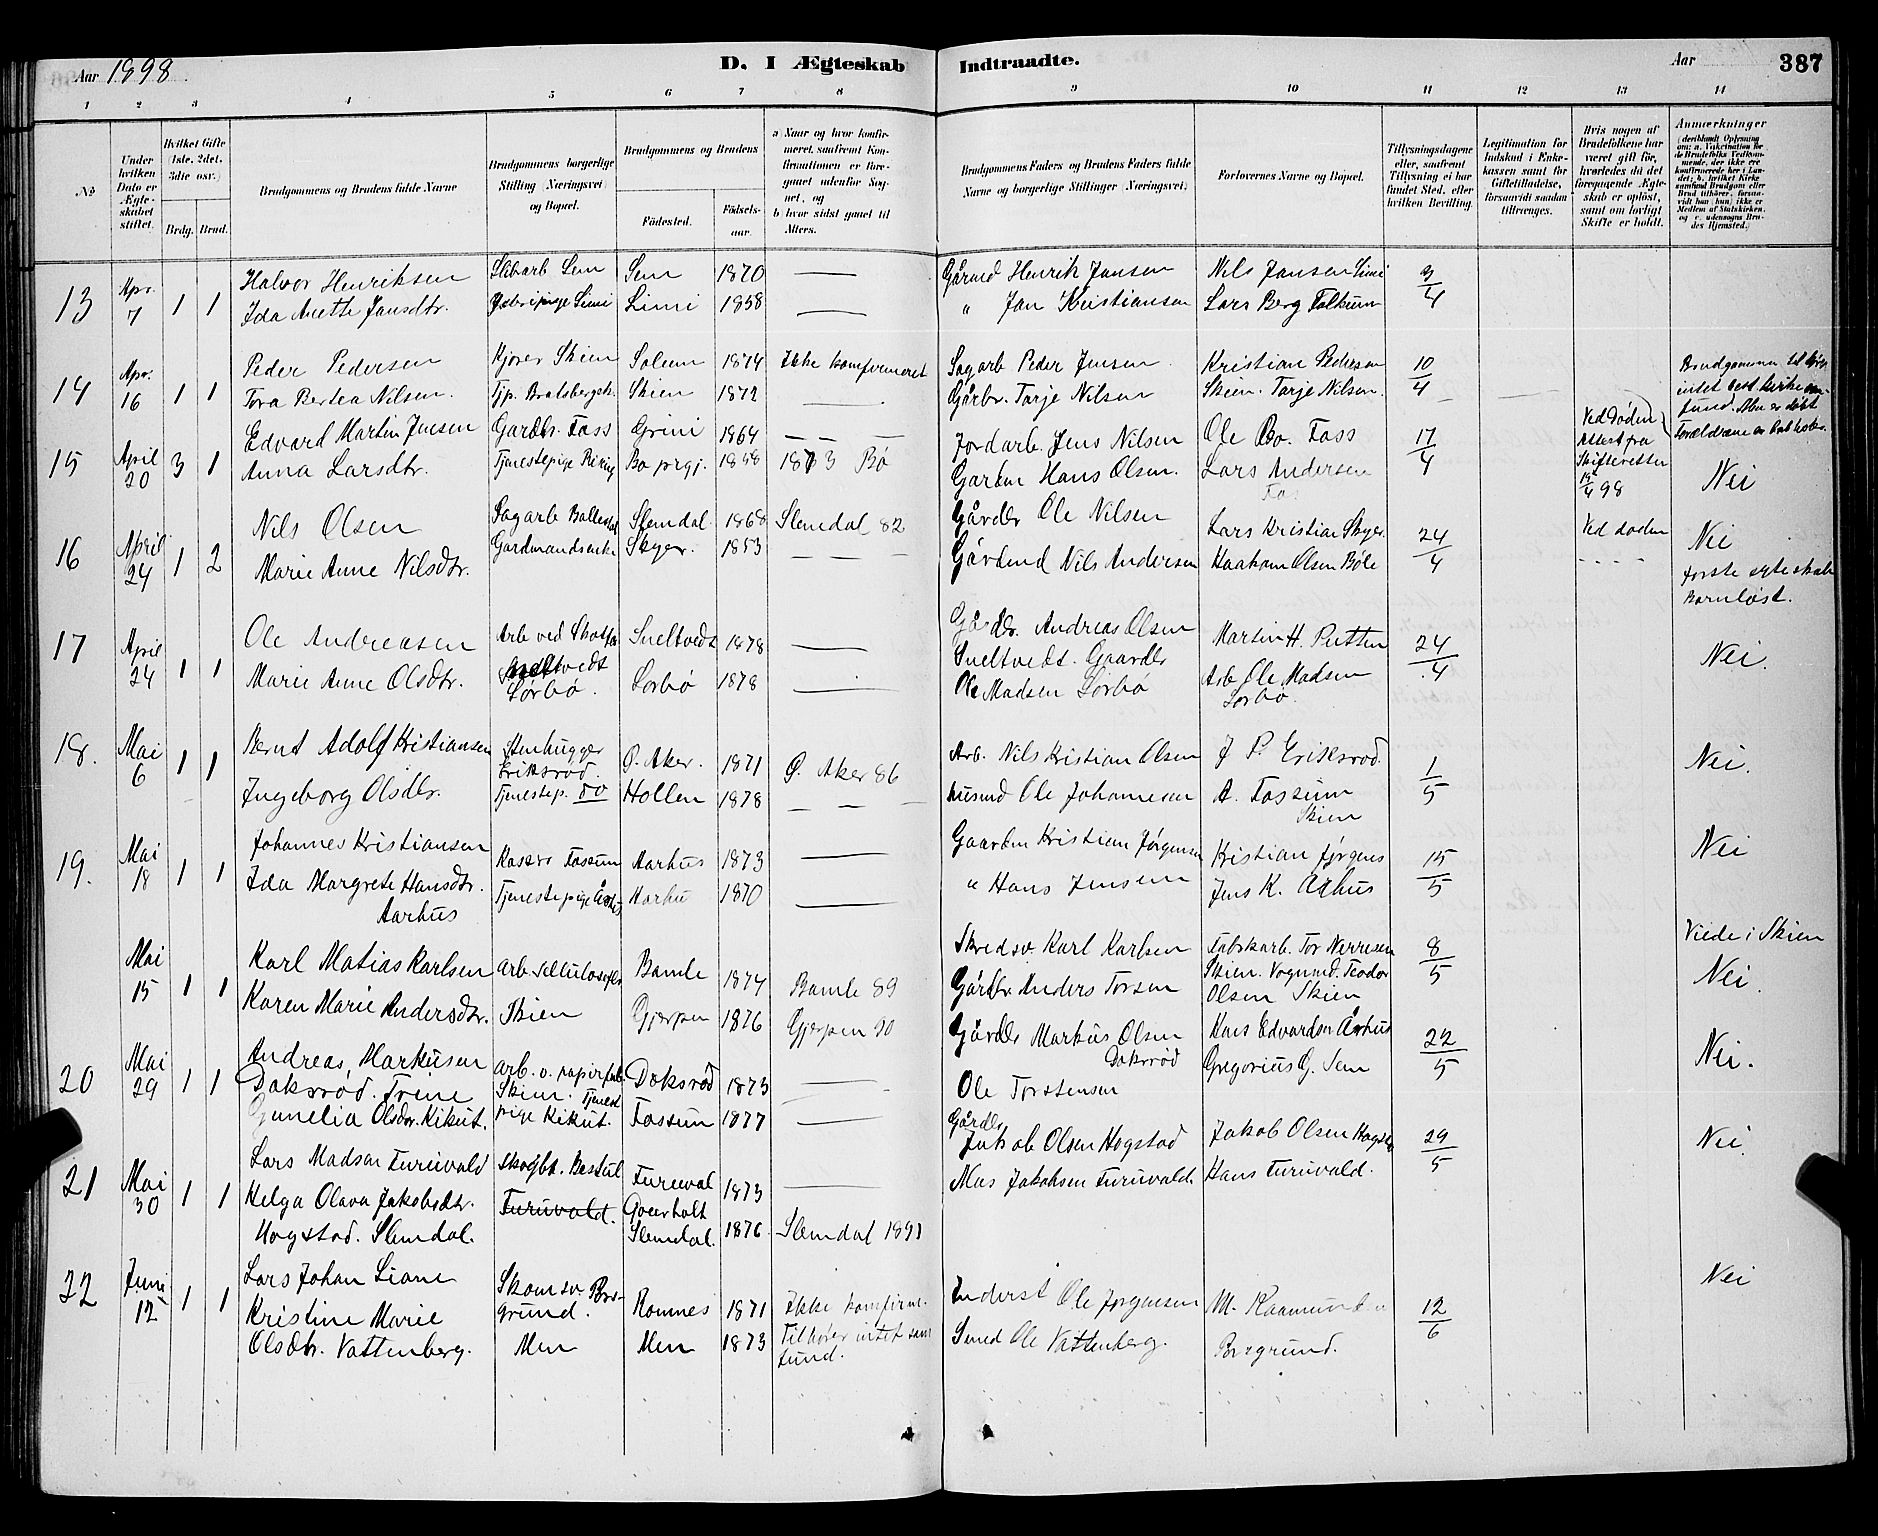 Aar 1898.
D. I Ægteskab Indtraadte.
Aar
387
1 2 3 4 5 6 7 8 9 10 11 12 13 14
No
Under hvilken Dato er Ægteskabet stiftet.
Hvilket Gifte (1ste, 2det, 3die osv.)
Brdg. Brud.
Brudgommens og Brudens fulde Navne
Brudgommens borgerlige Stilling (Næringsvei) og Bopæl.
Brudgommens og Brudens
Födested.
Födselsaar.
a) Naar og hvor konfirmeret, saafremt Konfirmationen er foregaaet udenfor Sognet, og
b) hvor sidst gaaet til Alters.
Brudgommens Faders og Brudens Faders fulde Navne og borgerlige Stillinger (Næringsvei)
Forlovernes Navne og Bopæl.
Tillysningsdagene eller, saafremt Tillysning ei har fundet Sted, efter hvilken Bevilling.
Legitimation for Indskud i Enkekassen samt for Giftetilladelse, forsaavidt saadan tiltrænges.
Hvis nogen af Brudefolkene har været gift för, hvorledes da det foregaaende Ægteskab er oplöst, samt om lovligt Skifte er holdt.
Anmærkninger
13 Apr. 7 1 1 Halvor Henriksen Sem Sem 1870 — Gårmd Henrik Jansen Nils Jansen Limi 3/4
Ida Anette Jansdtr. Limi Limi 1858 — " Jan Kristiansen Lars Berg Falkum
14 Apr. 16 1 1 Peder Pedersen Kjører Skien Solum 1874 Ikke komfirmeret Sagarb Peder Jensen Kristian Pedersen 10/4
Tora Bertea Nilsen. Tjp. Bratsbergsk. Skien 1872 — Gårbr. Tarje Nilsen Skien. Tarje Nilsen.
15 April 20 3 1 Edvard Martin Jensen Gardbr. Foss Grini 1864 — — Jordarb. Jens Nilsen Ole Bo. Foss 17/4 Ved Døden Attest fra Skifteretten 98 Nei
Anna Larsdtr. Tjenestepige Bo prgj. 1858 1873 Bø Garbm Hans Olsen. Lars Andersen
16 April 24 1 2 Nils Olsen Sagarb Slemdal 1868 Slemdal 82 Gårdbr Ole Nilsen Lars Kristian Skyer 24/4 Ved døden Nei
Marie Anne Nilsdtr. Gardmandsenke Skyer. 1853 — — — Gårdmd Nils Andersen Haakon Olsen Bøle første egteskab Barnløst.
17 April 24 1 1 Ole Andreasen Arb ved Sneltvedt 1878 — Gårdbr. Andreas Olsen Martin H. Putten 24/4 Nei.
Sneltvedt. Gaardbr
Marie Anne Olsdtr. Sørbø. Sørbø 1878 — Ole Madsen Sørbø Arb Ole Madsen Sørbø
18. Mai 6 1 1 Bernt Adolf Kristiansen Stenhugger Eriksrød. Ø. Aker. 1871 Ø. Aker 86 Arb. Nils Kristian Olsen J P. Eriksrød. 1/5 Nei.
Ingeborg Olsdtr. Tjenestep. do Hollen 1878 — — — Husmd Ole Johannesen A. Fossum Skien
19. Mai 18 1 1 Johannes Kristiansen Fossum Aarhus 1873 — Gaarbm Kristian Jørgensen Kristian Jørgens 15/5 Nei
Ida Margrete Hansdtr. Aarhus Tjenestepige Århus Aarhu 1870 — " Hans Jensen Jens K. Århus
Mai 15 1 1 Karl Matias Karlsen Arb. Bamle 1874 Bamle 89 Skredsv. Karl Karlsen Fabrikarb. Tor 8/5 Viede i Skien Nei.
Karen Marie Andersdtr. Skien Gjerpen 1876 Gjerpen 90 Gårdbr Anders Torsen Skien. Vognmd. Teodor Olsen Skien
20 Mai 29 1 1 Andreas Markusen Doksrød. Arb. v. papirfab. Skien. Doksrød 1873 — Gårdbr Markus Olsen Doksrød Hans Edvardsen Århus 22/5 Nei.
Trine Gunelia Olsdtr. Kikut. Tjenestpige Kikut. Fossum 1877 — Ole Torstensen Gregorius G. Sem
21 Mai 30 1 1 Lars Madsen Furuvald Skogbt. Bestul Furuval 1873 — Gårdbr Jakob Olsen Hogstad Jakob Olsen Hogstad 29/5 Nei.
Helga Olava Jakobsdtr. Hogstad. Slemdal. Furuvald. Slemdal. 1876 Slemdal 1891 Mas Jakobsen Furuvald. Hans Furuvald.
22 Juni 12 1 1 Lars Johan Liane Skomsv. Porsgrund. Romnes 1871 Ikke komfirme. Inderst Ole Jørgensen 12/6 Nei
Kristine Marie Olsdtr. Vattenberg. Men Men 1873 Tilhører intet samfund. Smed Ole Vattenberg. Porsgrund.